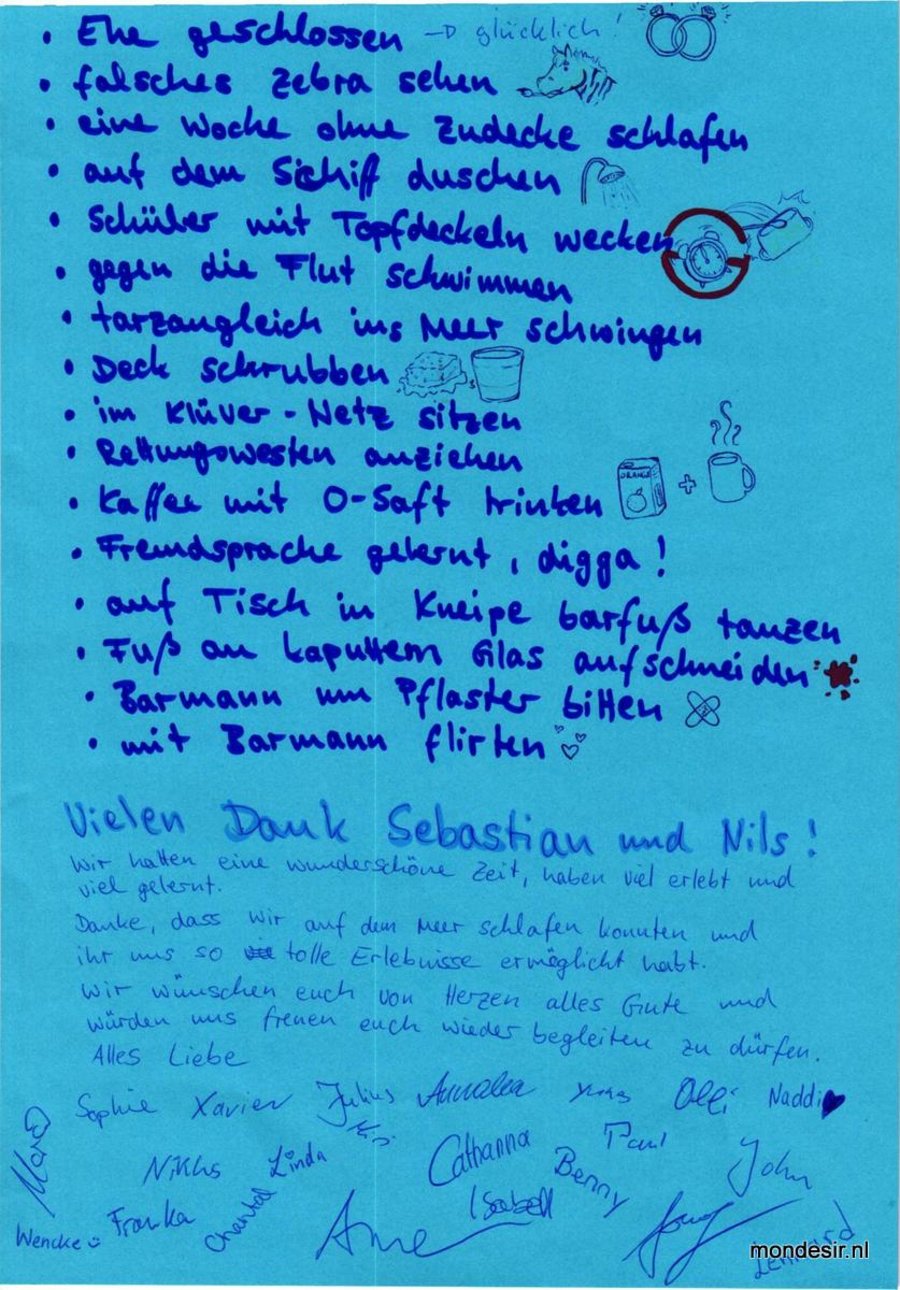 • Ehe geschlossen → glücklich!
• falsches Zebra sehen
• eine Woche ohne Zudecke schlafen
• auf dem Schiff duschen
• Schüler mit Topfdeckeln wecken
• gegen die Flut schwimmen
• tarzangleich ins Meer schwingen
• Deck schrubben
• im Klüver-Netz sitzen
• Rettungswesten anziehen
• Kaffee mit O-Saft trinken
ORANGE
+
• Fremdsprache gelernt, digga!
• auf Tisch in Kneipe barfuß tanzen
• Fuß an kaputtem Glas aufschneiden
• Barmann um Pflaster bitten
• mit Barmann flirten
Vielen Dank Sebastian und Nils!
Wir hatten eine wunderschöne Zeit, haben viel erlebt und
viel gelernt.
Danke, dass wir auf dem Meer schlafen konnten und
ihr uns so tolle Erlebnisse ermöglicht habt.
Wir wünschen euch von Herzen alles Gute und
würden uns freuen euch wieder begleiten zu dürfen.
Alles Liebe
Sophie Xavier Julius Annalea Olli Naddi
Niklas Linda Catharina Paul John
Benny
Wencke Franka Chantal Isabell
Lennard
mondesir.nl